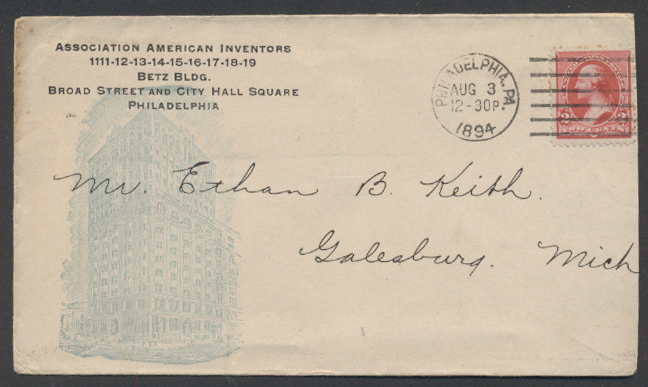 ASSOCIATION AMERICAN INVENTORS
1111-12-13-14-15-16-17-18-19
BETZ BLDG.
BROAD STREET AND CITY HALL SQUARE
PHILADELPHIA
PHILADELPHIA, PA.
AUG 3
12-30P.
1894
Mr. Ethan B. Keith.
Galesburg. Mich